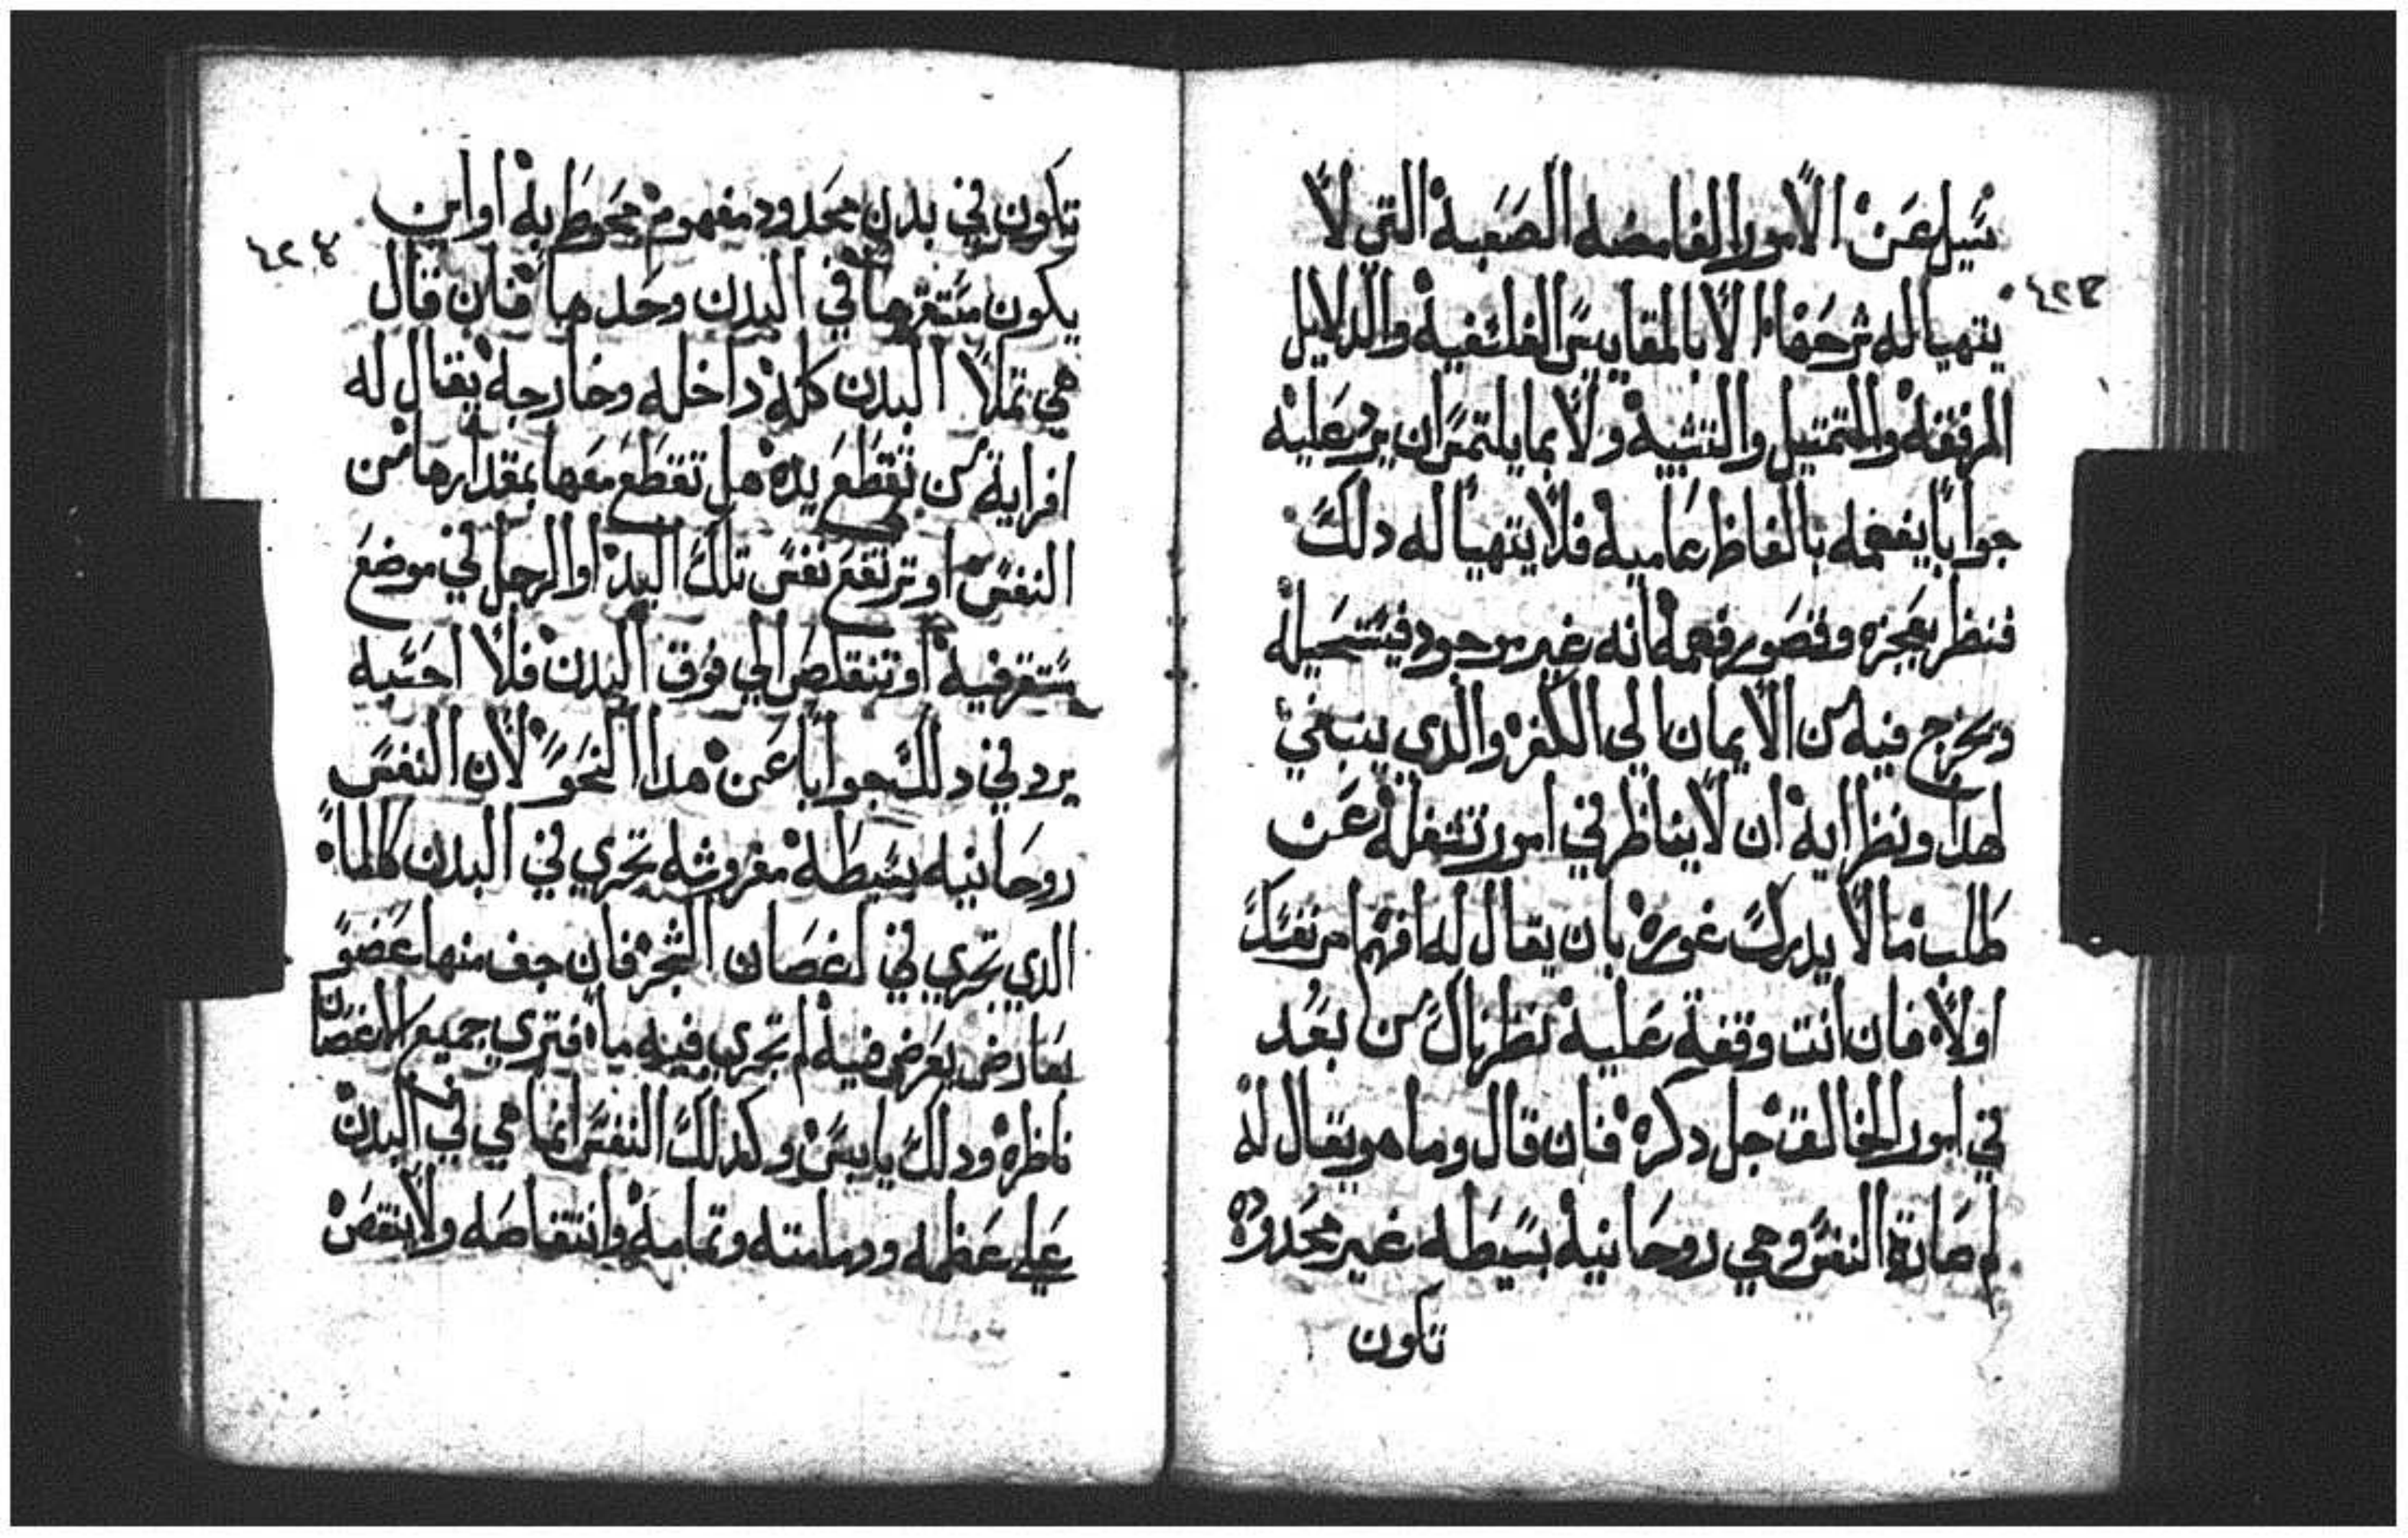 سيل عن الامور الغامضه الصعبة التي لا
يتهيا له شرحها الا بالمقاييس الفلسفيه والدلايل
المرفقه والتمتيل والتشبيه ولا بما يلتمس ان يرد عليه
جوابا يفهمه بالفاظ عاميه فلا يتهيا له دلك
فنظر بعجزه وقصور فهمه انه غير موجود فيستحيله
ويخرج فيه من الايمان الي الكفر والدي ينبغي
لهدا ونظرايه ان لا يناظر في امور تشغله عن
طلب ما لا يدرك غوره بان يقال له افهم امر نفسك
اولا فان انت وقفة عليه نظر بالك من بعد
في امور الخالق جل دكره فان قال وما هو يقال له
لم صارة النفس وهي روحانيه بسيطه غير محدوده
تكون
٤٢٣
تكون في بدن محدود مفهوم محوط به او اين
يكون مستقرها في البدن وحدها فان قال
هي تملا البدن كله داخله وخارجه يقال له
افراية من تقطع يده هل تقطع معها بمقدارها من
النفس او ترتفع نفس تلك اليد او الرجل في موضع
يستقر فيه او تتقلص الي فوق البدن فلا احسبه
يرد في دلك جوابا عن هدا النحو لان النفس
روحانيه بسيطه مفروشه تجري في البدن كالماء
الدي تجري في اغصان الشجر فان جف منها عضو
بعارض يعرض فيه لم تجري فيه ماء فتري جميع الاغصان
ناظره ودلك يابس وكدلك النفس انما هي في البدن
علي عظمه ودمامته وتمامه وانتقاصه ولا ينقص
٤٢٤